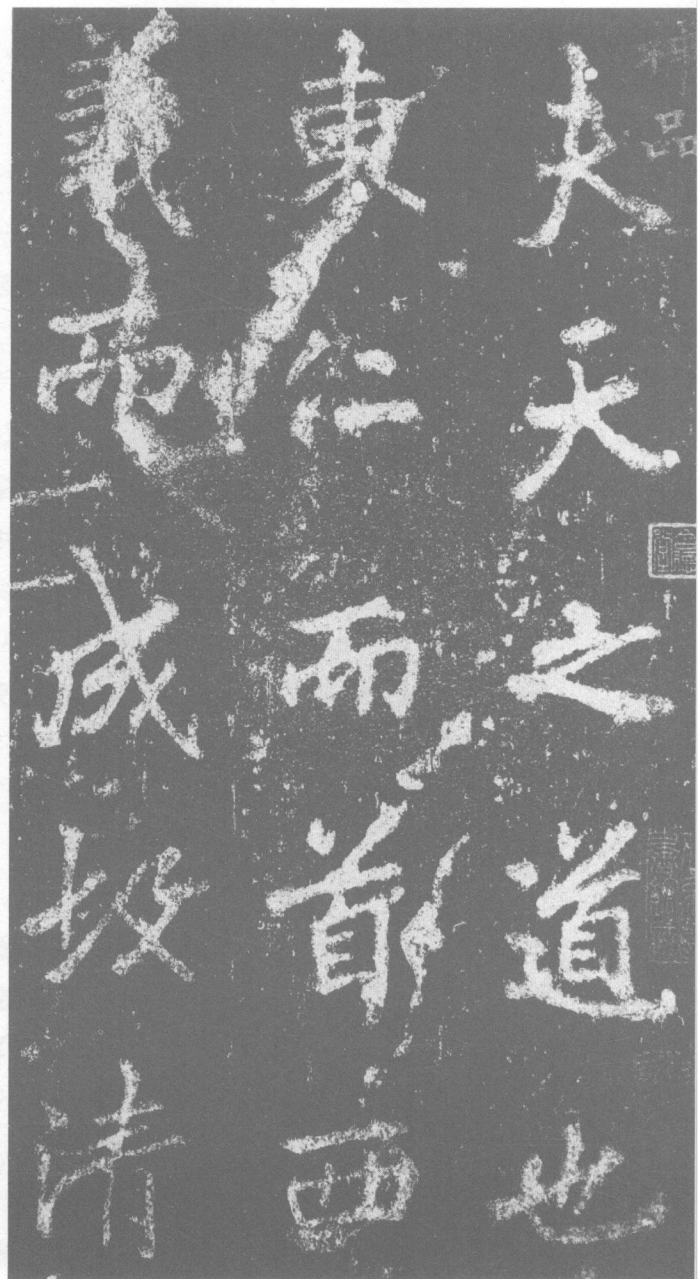 夫天之道也
東仁而首西
義而成故清
神品